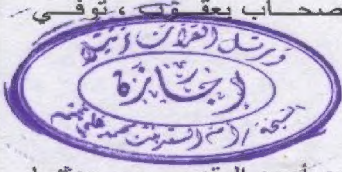 صحاب يعقوب ، توفي
ورتل القرآن ترتيلا
إجازة
الشيخة / أم السعد بنت محمد علي نجم